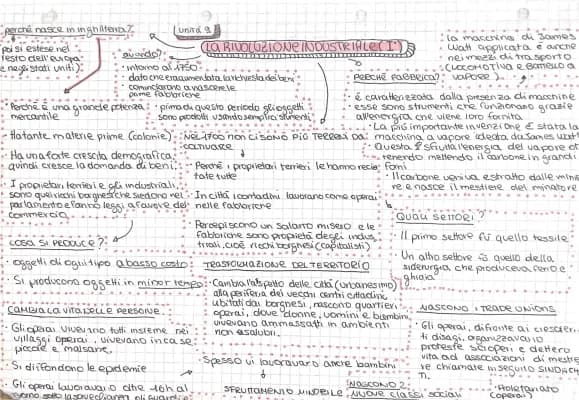 perché nasce in inghilterra?
poi si estese nel
resto dell'europa
e negli stati uniti).
Perché è una grande potenza
mercantile
Ha tante materie prime (colonie).
Ha una forte crescita demografica,
quindi cresce la domanda di beni.
I proprietari terrieri e gli industriali,
sono quei ricchi borghesi che siedono nel
parlamento e fanno leggi a favore del
commercio.
COSA SI PRODUCE?
oggetti di ogni tipo a basso costo
Si producono oggetti in minor tempo
CAMBIA LA VITA DELLE PERSONE.
Gli operai vivevano tutti insieme nei
villaggi operai, vivevano in case
piccole e malsane,
Si diffondono le epidemie
Gli operai lavoravano oltre 16h al
unità 9
LA RIVOLUZIONE INDUSTRIALE (I°)
quando?
intorno al 1750
dato che era aumentata la richiesta dei beni
cominciarono a nascere le
prime fabbriche
prima di questo periodo gli oggetti
sono prodotti usando semplici strumenti
NEL 1700 NON CI SONO PIÙ TERRENI DA
COLTIVARE
Perché i proprietari terrieri le hanno recin
tate tutte
In città i contadini lavorano come operai
nelle fabbriche
Percepiscono un salario misero e le
fabbriche sono proprietà degli indus
triali, cioè ricchi borghesi (capitalisti)
TRASFORMAZIONE DEL TERRITORIO
Cambia l'aspetto delle città (urbanesimo)
alla periferia dei vecchi centri cittadini,
abitati dai borghesi, nascono quartieri
operai, dove donne, uomini e bambini,
vivevano ammassati in ambienti
non salubri.
Spesso vi lavoravano anche bambini
SFRUTTAMENTO MINORILE
la macchina di James
Watt applicata è anche
nei mezzi di trasporto
(locomotiva e battello a
vapore)
PERCHÉ FABBRICA?
è caratterizzata dalla presenza di macchine
esse sono strumenti che funzionano grazie
all'energia che viene loro fornita
La più importante invenzione è stata la
macchina a vapore ideata da James Watt
Questa sfrutta l'energia del vapore ot
tenendo mettendo il carbone in grandi
forni
Il carbone veniva estratto dalle minie
re e nasce il mestiere del minatore
QUALI SETTORI?
Il primo settore fu quello tessile
Un altro settore fu quello della
siderurgia che produceva ferro e
ghisa
NASCONO I TRADE UNIONS
Gli operai, di fronte ai crescen
ti disagi, organizzavano
proteste scioperi e dettero
vita ad associazioni di mestie
re chiamate in seguito SINDACA
TI.
NASCONO 2
NUOVE CLASSI sociali
Proletariato
(operai)